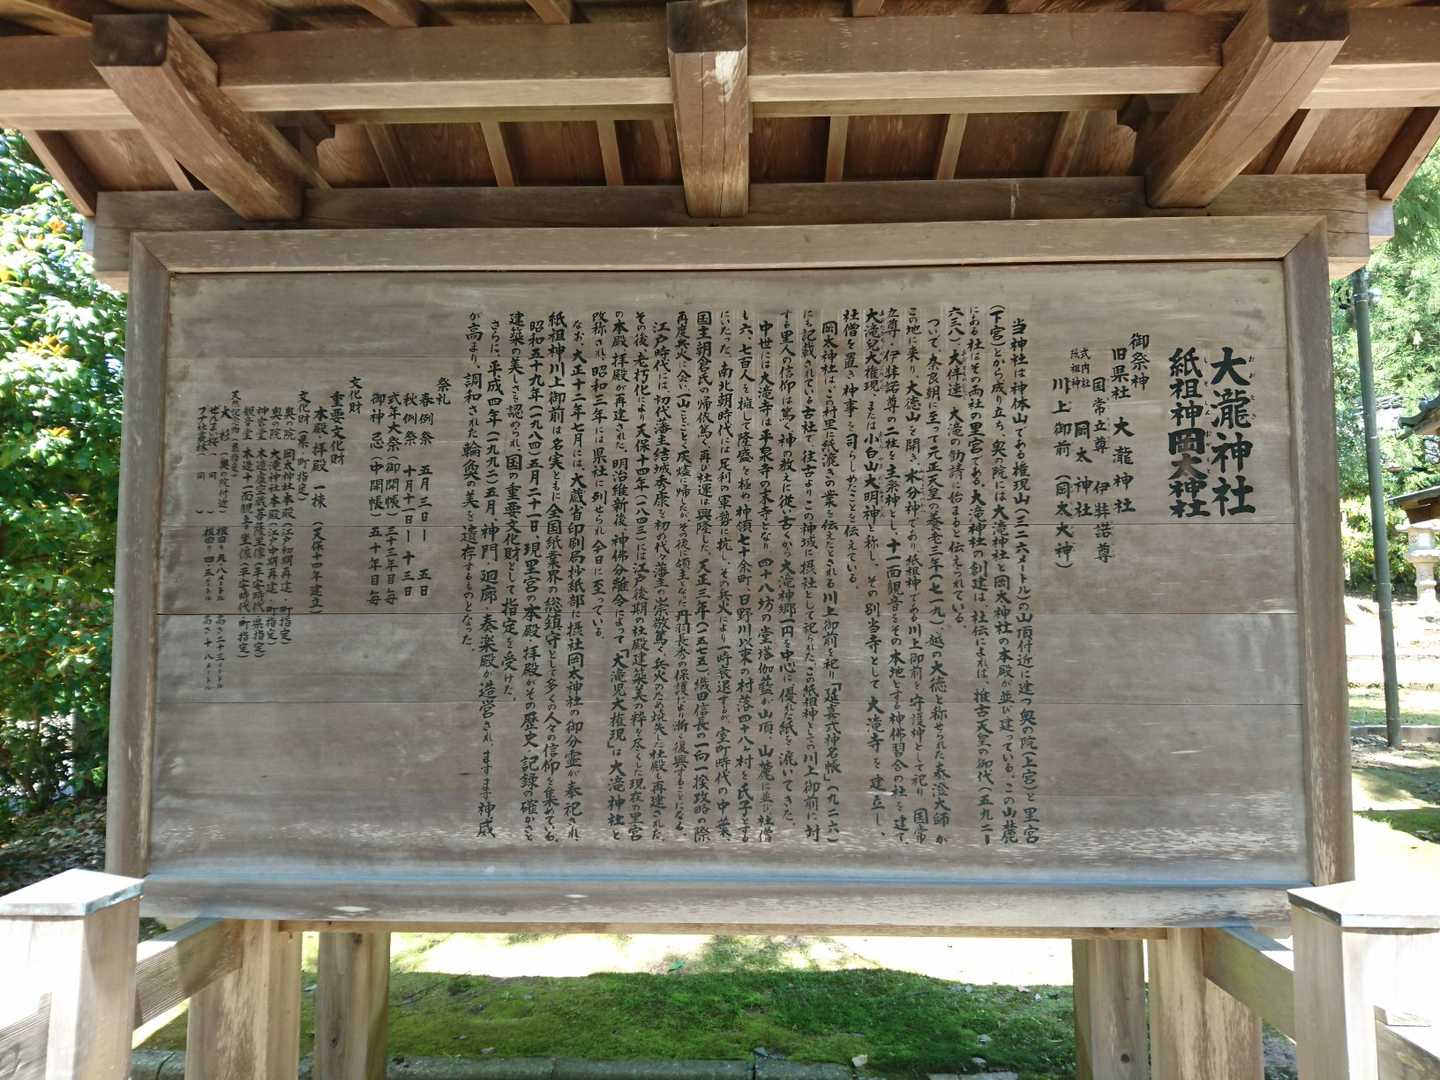 大瀧神社
紙祖神岡太神社
御祭神
旧県社 大瀧神社
国常立尊 伊弉諾尊
式内社
紙祖神 岡太神社
川上御前 (岡太大神)
当神社は神体山である権現山(三二六メートル)の山頂付近に建つ奥の院(上宮)と里宮
(下宮)とから成り立ち、奥の院には大滝神社と岡太神社の本殿が並び建っている。この山麓
にある社はその両社の里宮である。大滝神社の創建は、社伝によれば、推古天皇の御代(五九二ー
六三八)、大伴連 大滝の勧請に始まると伝えられている。
ついで、奈良朝に至って元正天皇の養老三年(七一九)、越の大徳と称せられた泰澄大師が
この地に来り、大徳山を開き、水分神であり紙祖神である川上御前を守護神として祀り、国常
立尊・伊弉諾尊の二柱を主祭神とし、十一面観音をその本地とする神佛習合の社を建て、
大滝児大権現、または小白山大明神と称し、その別当寺として大滝寺を建立し、
社僧を置き神事を司らしめたことを伝えている。
岡太神社は、この村里に紙漉きの業を伝えたとされる川上御前を祀り「延喜式神名帳」(九二六)
にも記載されている古社で、往古よりこの神域に摂社として祀られた。この紙祖神としての川上御前に対
する里人の信仰は篤く、神の教えに従い古くから大滝神郷一円を中心に優れた紙を漉いてきた。
中世には大滝寺は平泉寺の末寺となり、四十八坊の堂塔伽藍が山頂、山麓に並び、社僧
も六、七百人を擁して隆盛を極め、神領七十余町、日野川以東の村落四十八ヶ村を氏子とする
にいたった。南北朝時代には足利の軍勢に抗し、その兵火により一時衰退するが、室町時代の中葉、
国主朝倉氏の帰依篤く、再び社運は興隆した。天正三年(一五七五)織田信長の一向一揆攻略の際
再度兵火に会い一山ことごとく灰燼に帰したが、その後に領主となった丹羽長秀の保護により漸く復興することになる。
江戸時代には、初代藩主結城秀康を初め代々藩主の崇敬篤く、兵火のため焼失した社殿も再建された。
その後、老朽化により天保十四年(一八四三)には江戸後期の社殿建築美の粋を尽くした現在の里宮
の本殿・拝殿が再建された。明治維新後、神佛分離令によって「大滝児大権現」は大滝神社と
改称され、昭和三年には県社に列せられ今日に至っている。
なお、大正十二年七月には、大蔵省印刷局抄紙部に摂社岡太神社の御分霊が奉祀され、
紙祖神川上御前は名実ともに全国紙業界の総鎮守として多くの人々の信仰を集めている。
昭和五十九年(一九八四)五月二十一日、現里宮の本殿・拝殿がその歴史・記録の確かさと
建築の美しさを認められ、国の重要文化財として指定を受けた。
さらに、平成四年(一九九二)五月、神門・廻廊・奏楽殿が造営され、ますます神威
が高まり、調和された輪奐の美を遺存するものとなった。
祭礼
春例祭 五月三日ー五日
秋例祭 十月十一日ー十三日
式年大祭(御開帳) 三十三年目毎
御神忌(中開帳) 五十年目毎
文化財
重要文化財
本殿・拝殿 一棟 (天保十四年建立)
文化財(県・町指定)
奥の院 岡太神社本殿(江戸初期再建・町指定)
奥の院 大滝神社本殿(江戸中期再建・町指定)
神宮堂 木造虚空蔵菩薩坐像(平安時代・県指定)
観音堂 木造十一面観音坐像(平安時代・町指定)
大杉 (奥の院付近)